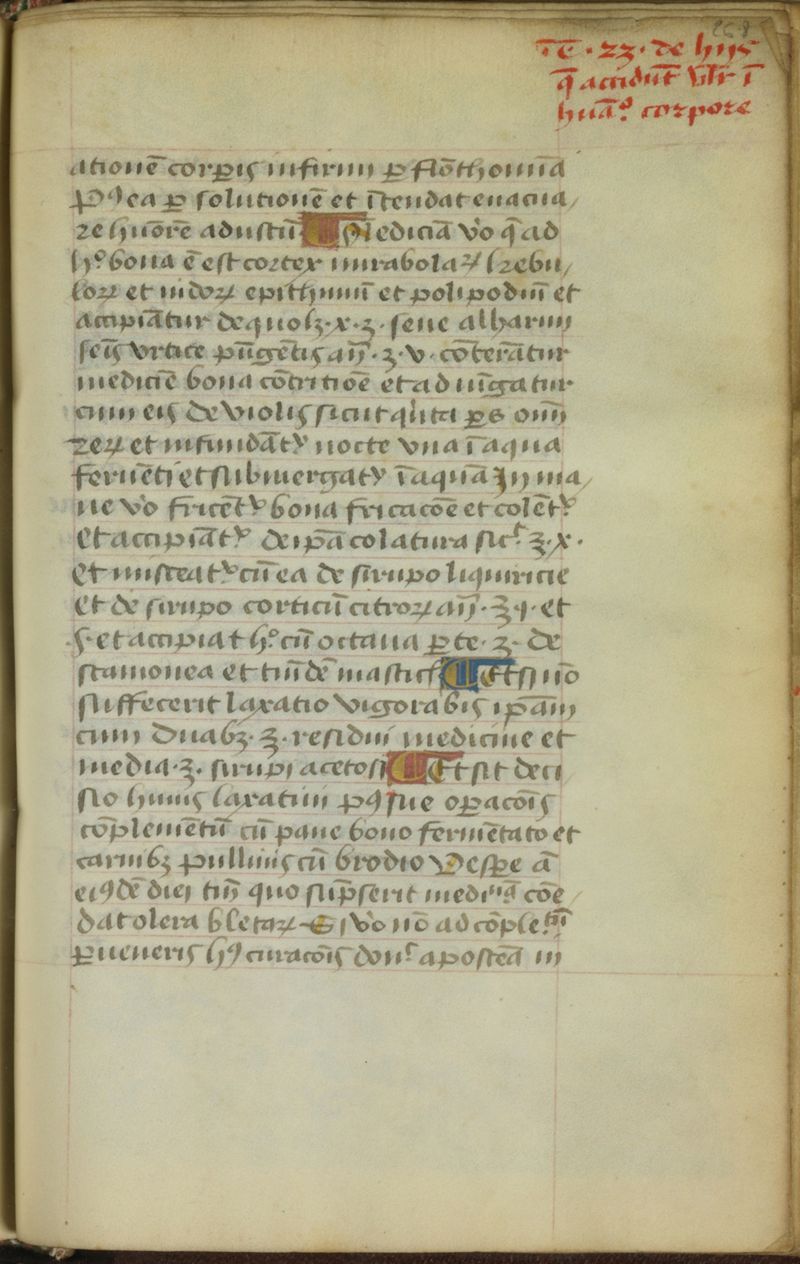 268
Tc̄ · 23 · de hijs
q̄ accidūt vlr̄ ī
huāo corpore
ationē corꝑis infirmi ꝑ flōthomiā
Pꝰ ea ꝑ solutionē et ītendat euacua/
re huōrē adustū ¶ Mediciā v̊o q̄ ad
ho bona ē est cortex mirabolaꝝ kebu/
loꝝ et indoꝝ epithimū et polipodiū et
accipiātur de quolꝫ · x · ʒ · sene albarim
seīs vrtice pūgētis añ · ʒ · v · cōterātur
medicīe bona cōtritiōe et adiūgatur
cum eis de violis sicut q̄rta ꝑs oīm
eeꝝ et infundāt᷒ nocte vna ī aqua
feruēti et submergat᷒ ī aquā In ma/
ne v̊o fricēt᷒ bona fricacōe et colēt᷒
Et accipiāt᷒ de ip̄a colatura sict ʒ · x ·
Et misceat᷒ cū ea de sirupo liquiricie
et de sirupo corticū citroꝝ añ · ℥ · i · et
ę · et accipiat ho cū octaua ꝑte · ʒ · de
scamonea et tm̄dē masticis ¶ Et si nō
suffecerit laxatio vigorabis ip̄am
cum duabꝫ · ʒ · residui medicine et
media · ʒ · sirupi acetosi ¶ Et sit deci
sio huius laxatiui pꝰ sue oꝑacōis
cōplementū cū pane bono fermētato et
carnibꝫ pullinis cū brodio Vesꝑe ā
eiꝰdē diei tn̄ quo sūpserit medina cōe/
dat olera bletaꝝ Si v̊o nō ad cōpletm̄
ꝑueneris hꝰ curacōis donc apostēa in